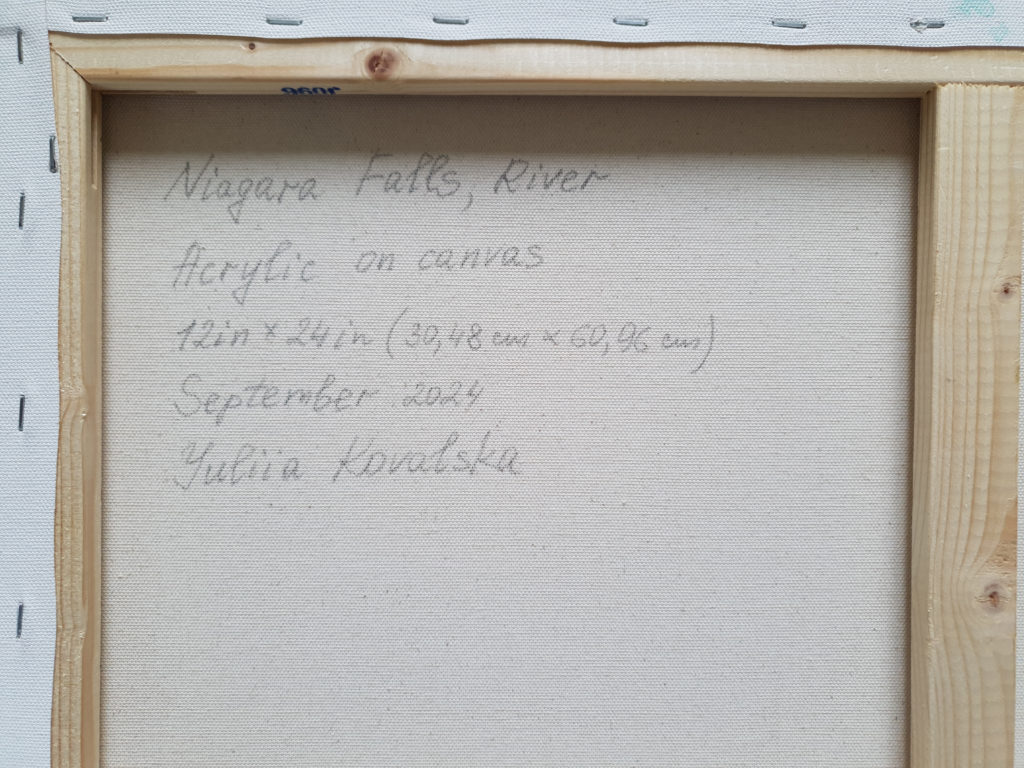 Niagara Falls, River
Acrylic on canvas
12in × 24in (30,48 cm × 60,96 cm)
September 2024
Yuliia Kovalska